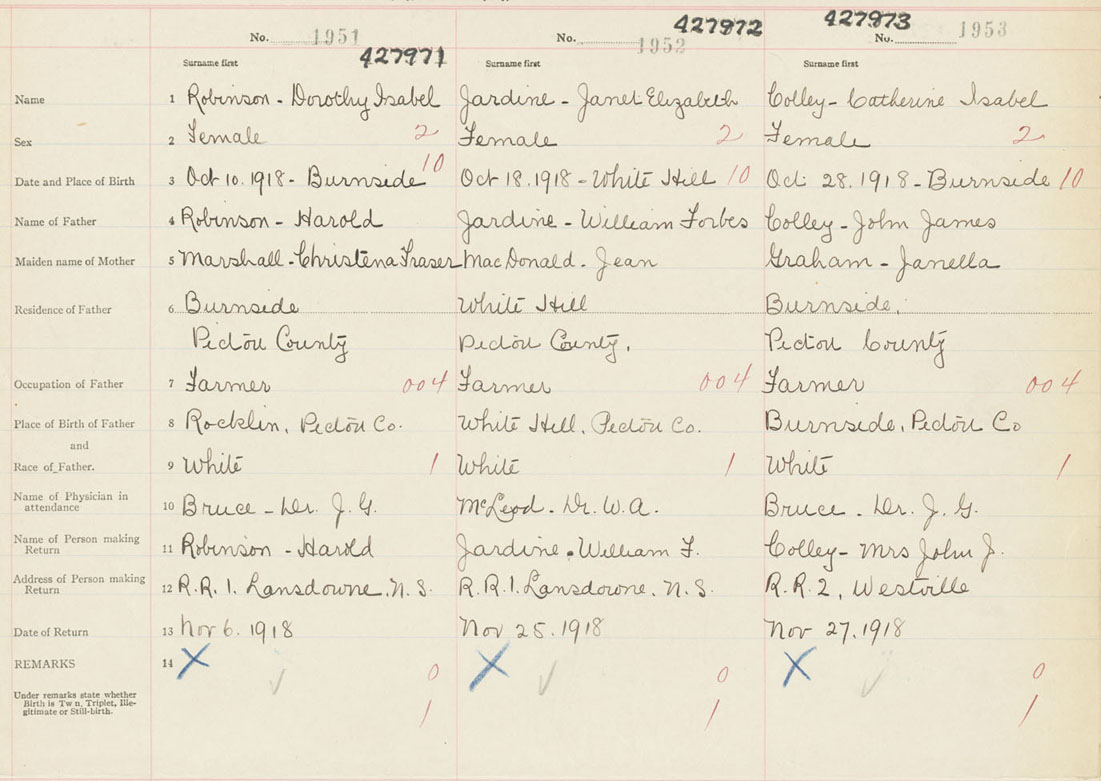 427971 427972 427973
No. 1951 No. 1952 No. 1953
Surname first Surname first Surname first
Name 1 Robinson - Dorothy Isabel Jardine - Janet Elizabeth Colley - Catherine Isabel
Sex 2 Female 2 Female 2 Female 2
Date and Place of Birth 3 Oct 10. 1918 - Burnside 10 Oct 18. 1918 - White Hill 10 Oct 28. 1918 - Burnside 10
Name of Father 4 Robinson - Harold Jardine - William Forbes Colley - John James
Maiden name of Mother 5 Marshall - Christena Fraser MacDonald - Jean Graham - Janella
Residence of Father 6 Burnside White Hill Burnside,
Pictou County Pictou County, Pictou County
Occupation of Father 7 Farmer 004 Farmer 004 Farmer 004
Place of Birth of Father 8 Rocklin, Pictou Co. White Hill, Pictou Co. Burnside, Pictou Co
and
Race of Father. 9 White 1 White 1 White 1
Name of Physician in attendance 10 Bruce - Dr. J. G. McLeod - Dr. W. A. Bruce - Dr. J. G.
Name of Person making Return 11 Robinson - Harold Jardine - William F. Colley - Mrs John J.
Address of Person making Return 12 R.R. 1. Lansdowne, N. S. R.R. 1. Lansdowne, N. S. R.R. 2, Westville
Date of Return 13 Nov 6. 1918 Nov 25. 1918 Nov 27. 1918
REMARKS 14 X 0 X 0 X 0
Under remarks state whether
Birth is Tw n, Triplet, Ille-
gitimate or Still-birth. 1 1 1